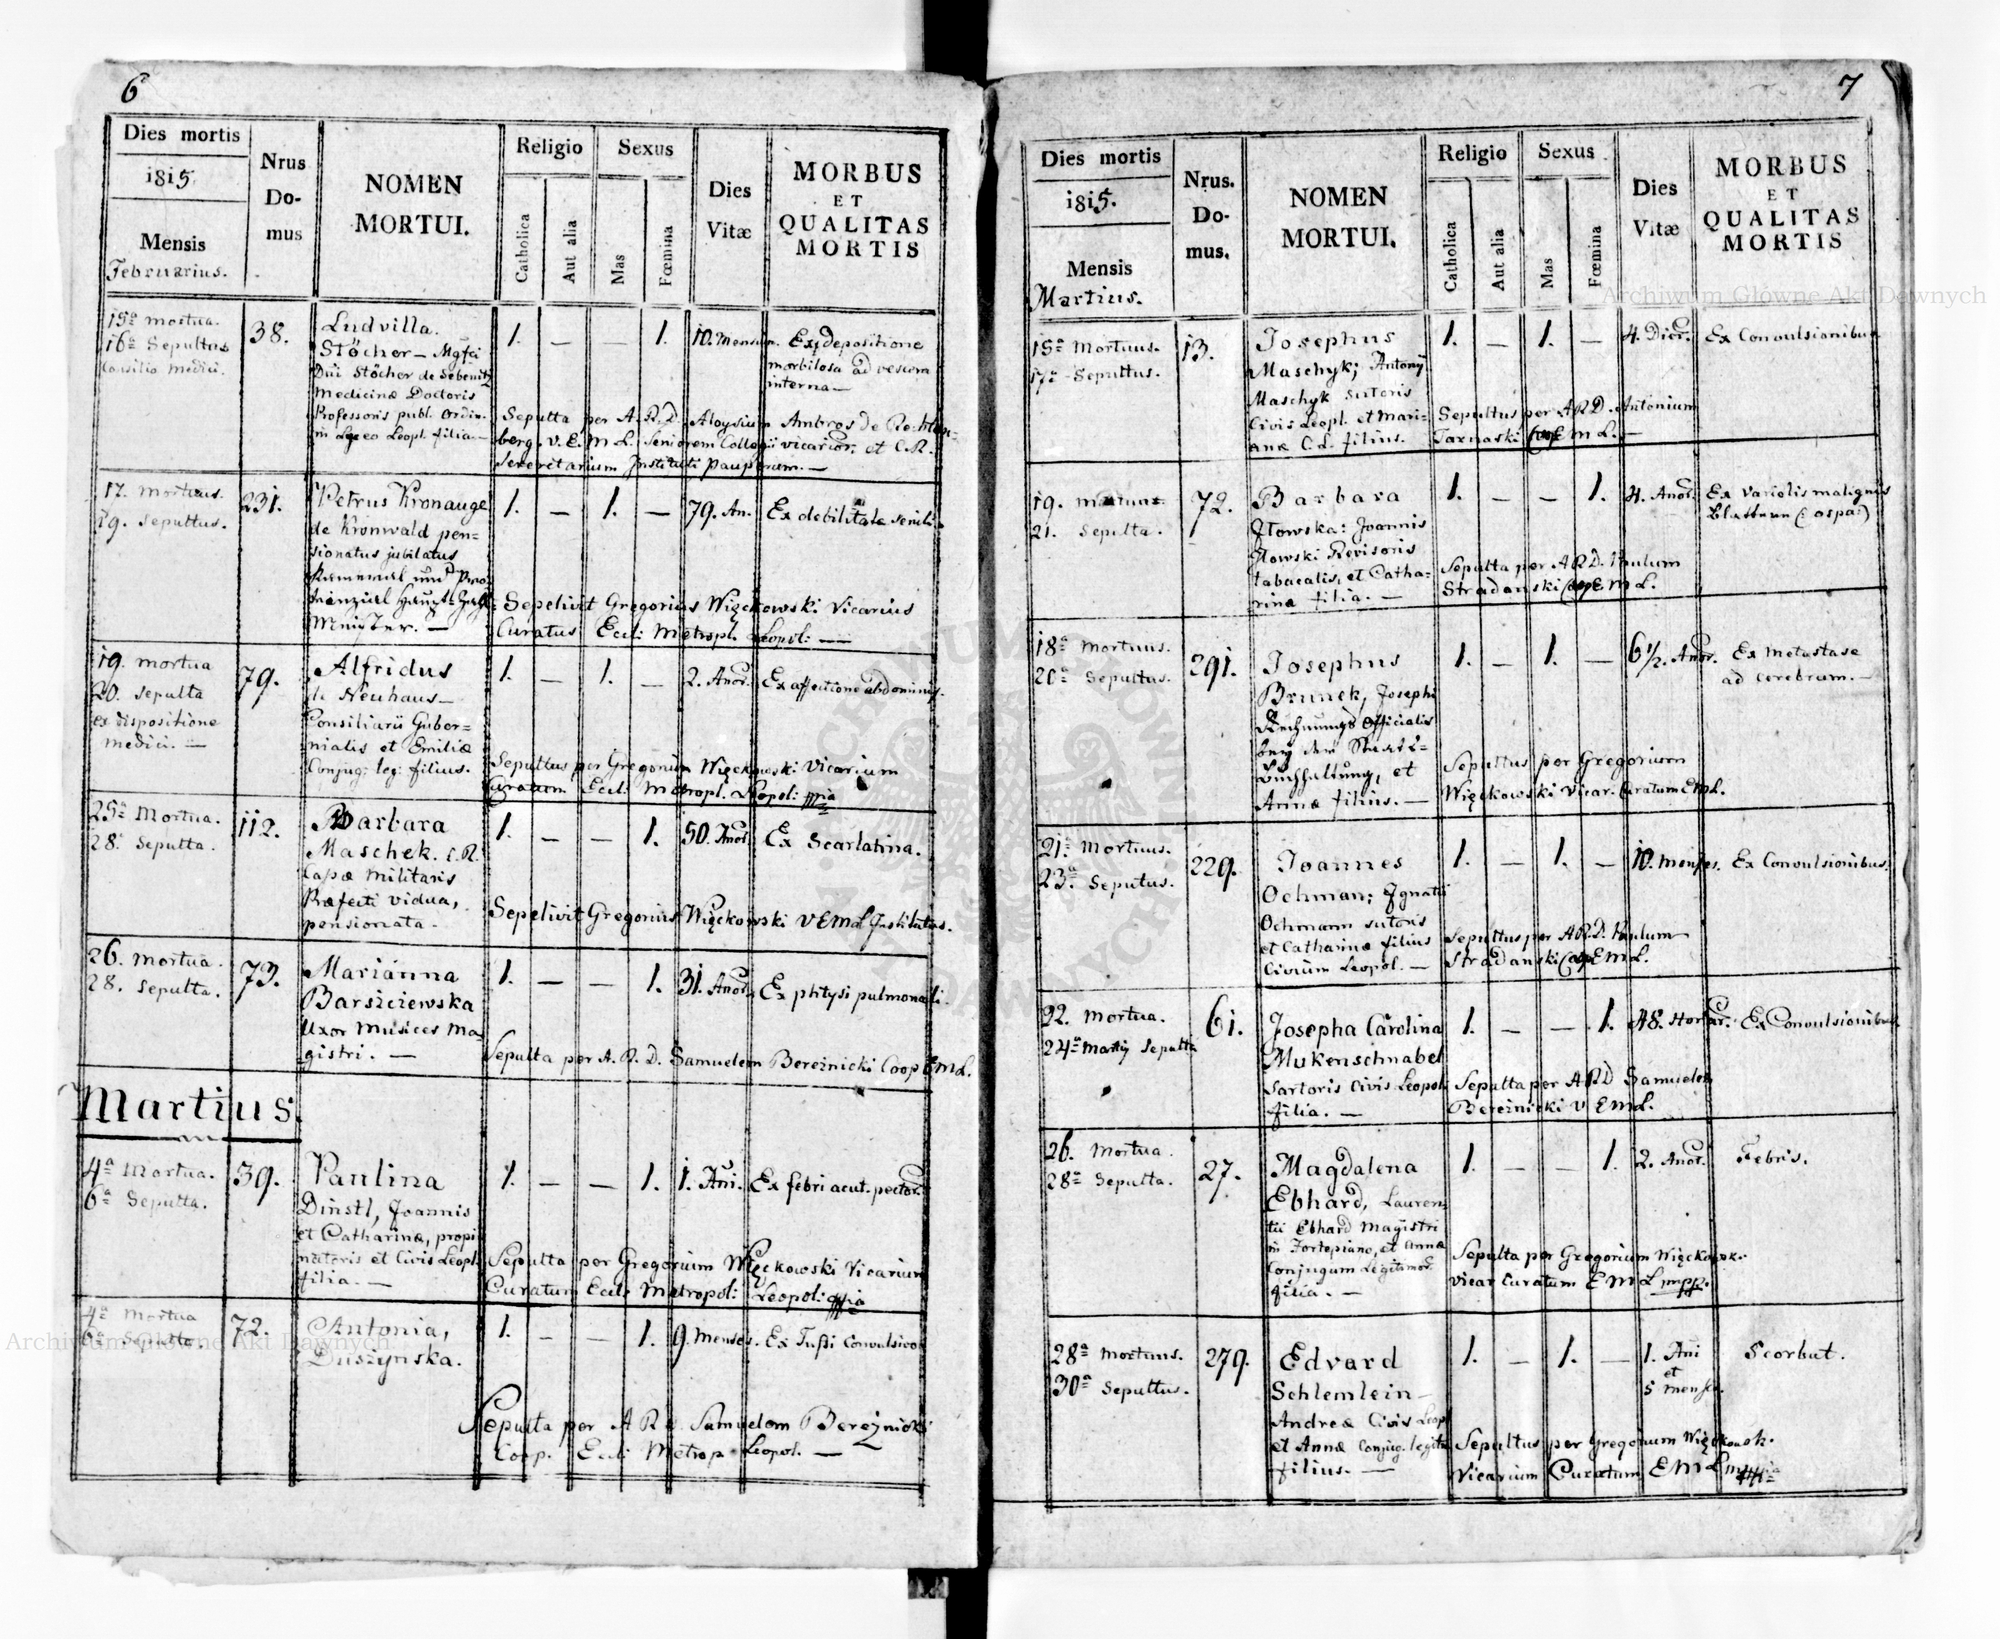 6
Dies mortis
1815
Mensis
Februarius.
Nrus
Do-
mus
NOMEN
MORTUI.
Religio
Catholica
Aut alia
Sexus
Mas
Fœmina
Dies
Vitæ
MORBUS
ET
QUALITAS
MORTIS
15a mortua.
16a Sepultus
Consilio medici.
38.
Ludvilla.
Stöcher – Mgfci
Dni Stöcher de Sebenitz
Medicinæ Doctoris
Professoris publ. ordin.
in Lyceo Leopl. filia.—
1. — — 1.
10. Mensium.
Ex depositione
morbilosa ad viscera
interna—
Sepulta per A. R. D. Aloysium Ambros de Rechten-
berg. v. E. M. L. Seniorem Collegii vicarior. et C. R.
Secretarium Instituti pauperum.—
17. mortuus.
19. Sepultus.
231.
Petrus Kronauge
de Kronwald pen-
sionatus jubilatus
1. — 1. —
79. An.
Ex debilitate senili
Sepelivit Gregorius Więckowski Vicarius
Curatus Eccl: Metropl. Leopol: —
19. mortua
20. Sepulta
ex dispositione
medici. —
79.
Alfridus
de Neuhaus—
Consiliarii Guber-
nialis et Emiliæ
Conjug: leg: filius.
1. — 1. —
2. Anor.
Ex affectione abdominis.
Sepultus per Gregorium Więckowski Vicarium
Curatum Eccl: Metropl. Leopol: mppia
25a Mortua.
28. Sepulta.
112.
Barbara
Maschek. C. R.
Capæ Militaris
Præfecti vidua,
pensionata.
1. — — 1.
50. Anor.
Ex Scarlatina.
Sepelivit Gregorius Więckowski V E M L Institutus.
26. mortua.
28. Sepulta.
73.
Marianna
Barsziczewska
Uxor Musices Ma-
gistri. —
1. — — 1.
31. Anor.
Ex phtysi pulmonali
Sepulta per A. R. D. Samuelem Bereźnicki Coop E M L.
Martius.
4a Mortua.
6a Sepulta.
39.
Paulina
Dinstl, Joannis
et Catharinæ, propi-
natoris et Civis Leopl.
filia. —
1. — — 1.
1. Ani.
Ex febri acut. pector.
Sepulta per Gregorium Więckowski Vicarium
Curatum Eccl: Metropol: Leopol: mppia
4a Mortua
6a Sepulta.
72.
Antonia,
Duszynska.
1. — — 1.
9. Menses.
Ex Tussi Convulsivo
Sepulta per A R D. Samuelem Bereźnicki
Coop. Eccl: Metrop. Leopol. —
7
Dies mortis
1815.
Mensis
Martius.
Nrus.
Do-
mus.
NOMEN
MORTUI.
Religio
Catholica
Aut alia
Sexus
Mas
Fœmina
Dies
Vitæ
MORBUS
ET
QUALITAS
MORTIS
15a Mortuus.
17a Sepultus.
13.
Josephus
Maschyk; Antony
Maschyk Sutoris
Civis Leopl. et Mari-
anæ C. L. filius.
1. — 1. —
4. Dier.
Ex Convulsionibus
Sepultus per A R D. Antonium
Tarnaski Coop E M L. —
19. mortua
21. Sepulta.
72.
Barbara
Joannis
Revisoris
tabacalis, et Catha-
rina filia. —
1. — — 1.
4. Anor.
Ex Variolis malignis
Blattern (: ospa:)
Sepulta per A R D. Paulum
Stradanski Coop E M L.
18a Mortuus.
20a Sepultus.
291.
Josephus
Brunek, Josephi
Rechnungs Officialis
bey der Staats-
Buchhaltung, et
Annæ filius. —
1. — 1. —
6 1/2. Anor.
Ex Metastase
ad cerebrum. —
Sepultus per Gregorium
Więckowski Vicar. Curatum E M L.
21. Mortuus.
23a. Seputus.
229.
Joannes
Ochman; Ignatii
Ochmann sutoris
et Catharinæ filius
Civium Leopol. —
1. — 1. —
10. Menses.
Ex Convulsionibus.
Sepultus per A R. D. Paulum
Stradanski Coop E M L.
22. Mortua.
24a Martiy Sepulta
61.
Josepha Carolina
Mukenschnabel
Sartoris Civis Leopol.
filia. —
1. — — 1.
48. Horar.
Ex Convulsionibus
Sepulta per A R D Samuelem
Bereźnicki V E M L.
26. Mortua.
28a Sepulta.
27.
Magdalena
Ebhard, Lauren-
tii Ebhard Magistri
in Fortepiano, et Annæ
Conjugum Legitimor.
filia. —
1. — — 1.
2. Anor.
Febris.
Sepulta per Gregorium Więckowski
Vicar Curatum E M L mpp.
28a Mortuus.
30a Sepultus.
279.
Edvard
Schlemlein—
Andreæ Civis Leopl
et Annæ Conjug. legit.
filius. —
1. — 1. —
1. Ani
et
5 mens.
Scorbut.
Sepultus per Gregorium Więckowsk.
Vicarium Curatum E M L mppia
Archiwum Główne Akt Dawnych
Archiwum Główne Akt Dawnych